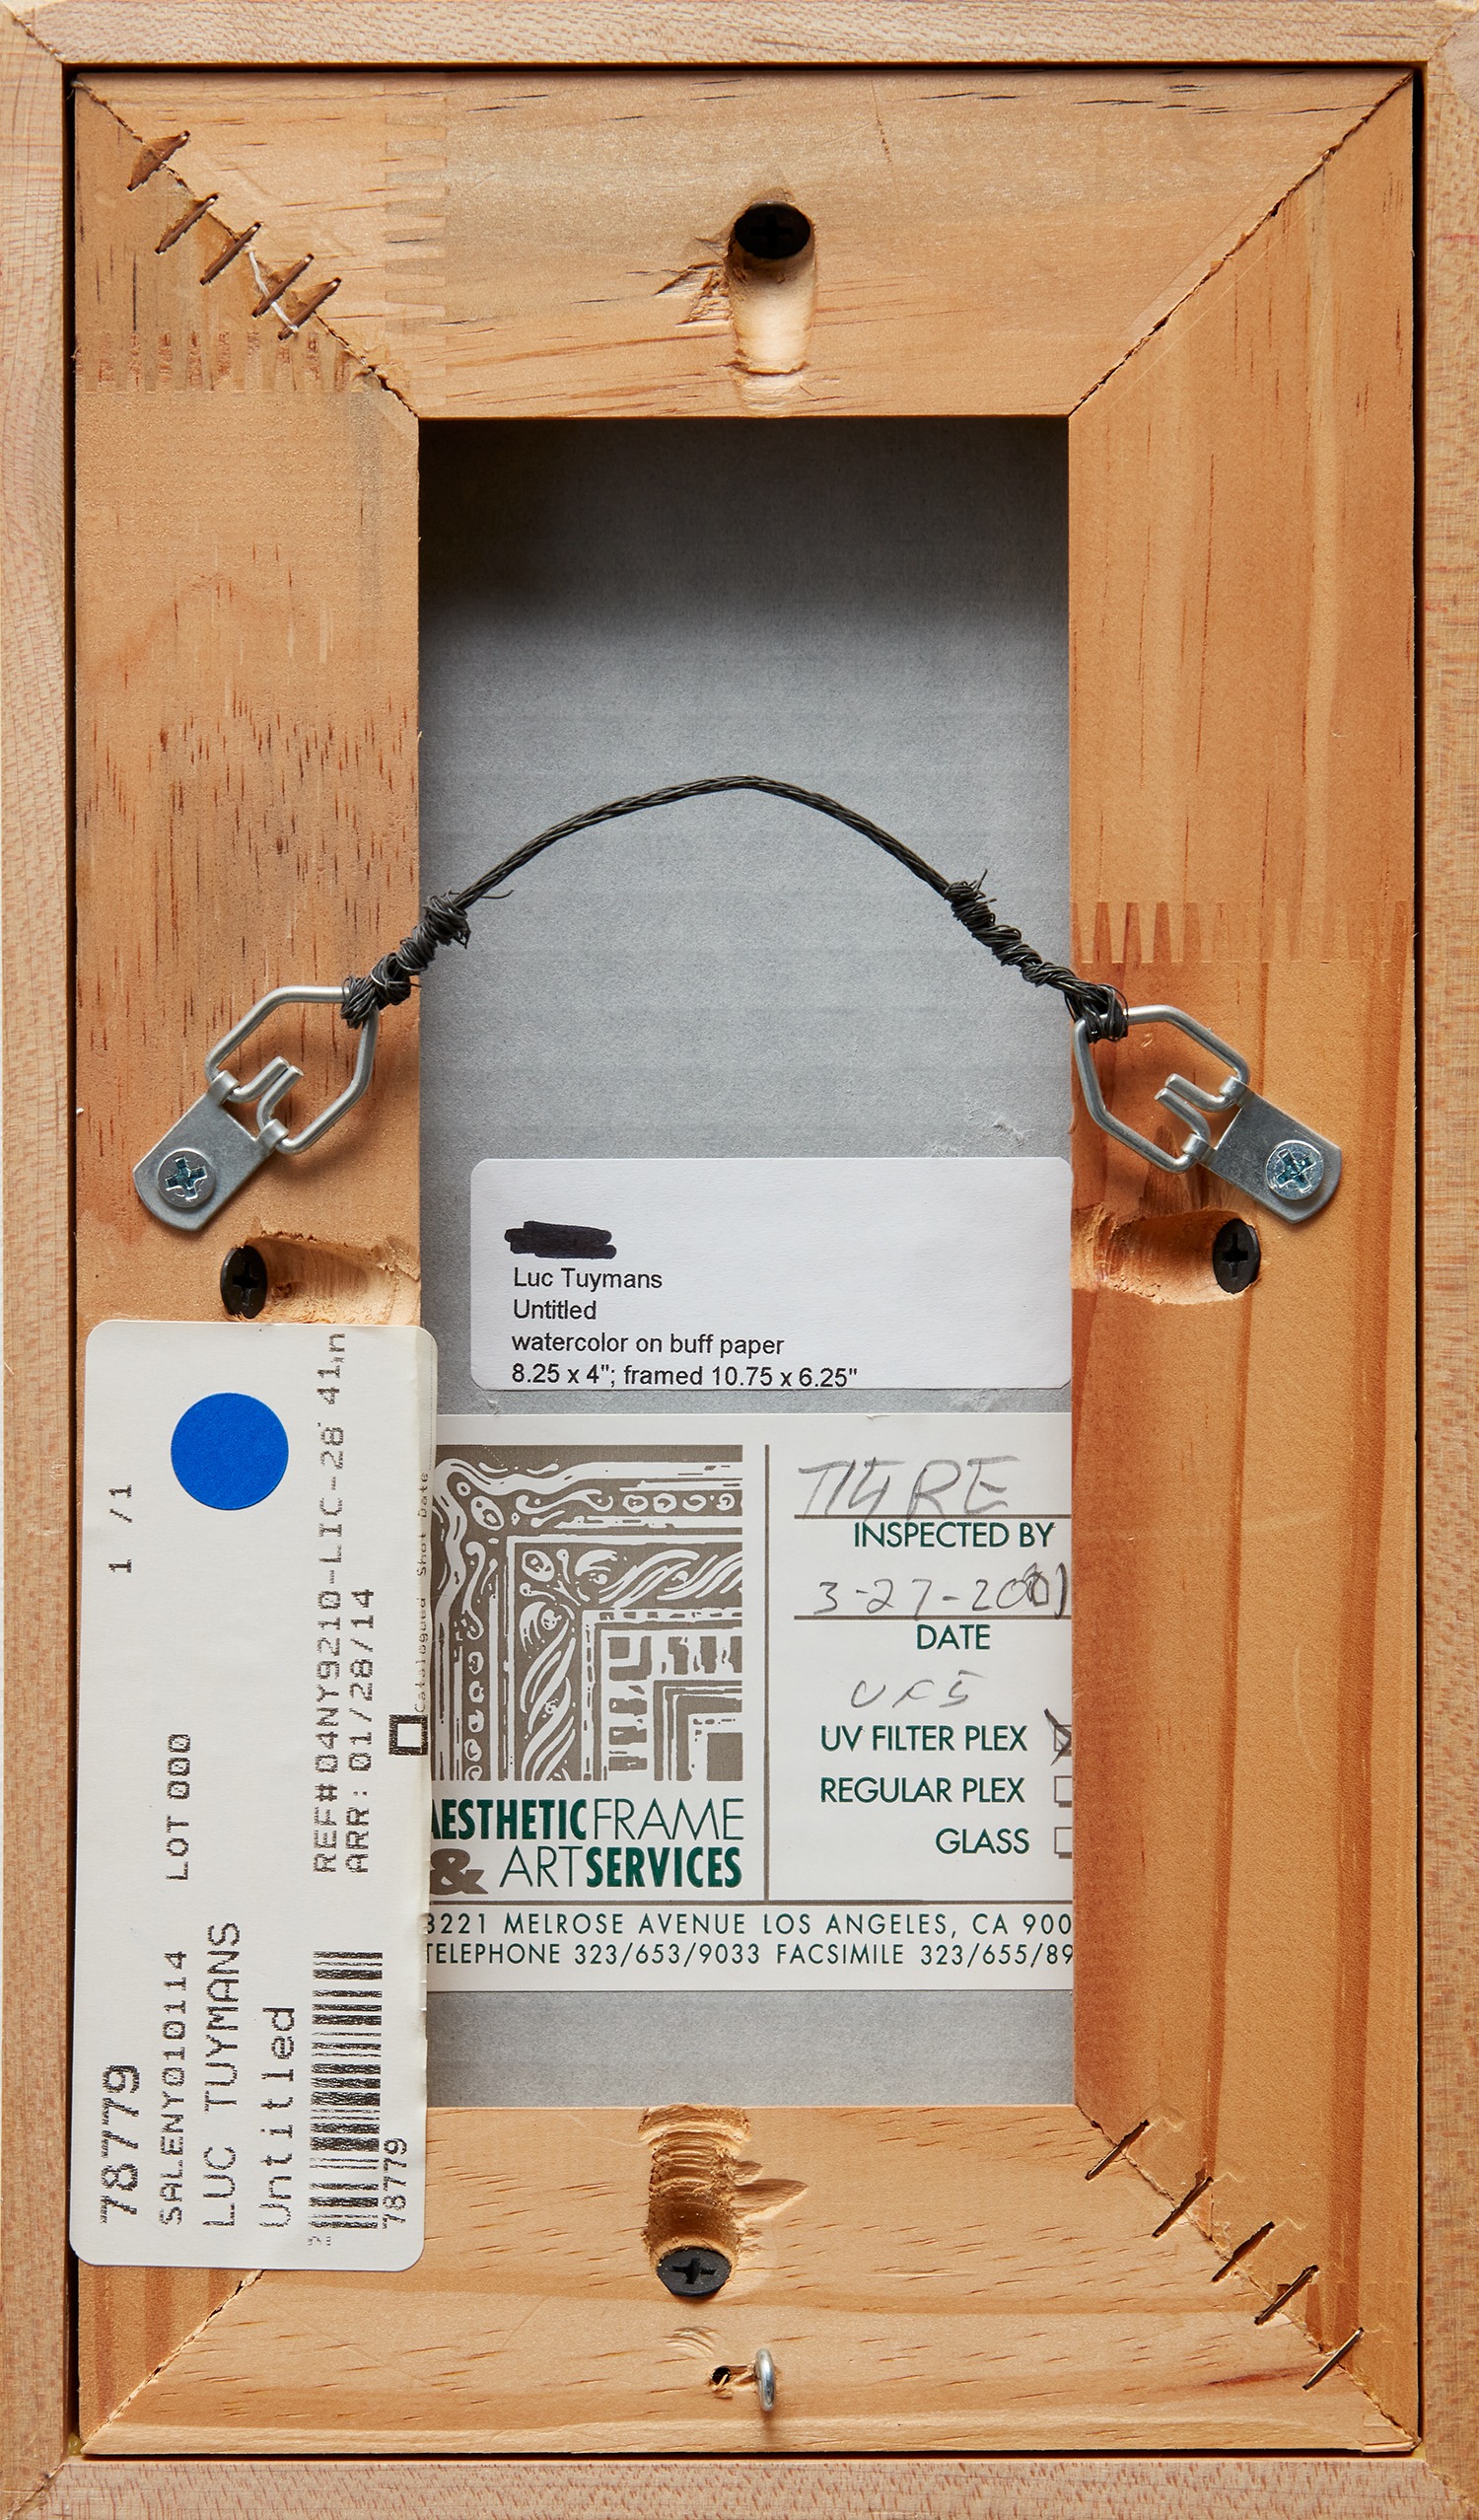 Luc Tuymans
Untitled
watercolor on buff paper
8.25 x 4"; framed 10.75 x 6.25"
INSPECTED BY
3-27-2001
DATE
UF5
UV FILTER PLEX
REGULAR PLEX
GLASS
AESTHETIC FRAME
& ART SERVICES
3221 MELROSE AVENUE LOS ANGELES, CA 900
TELEPHONE 323/653/9033 FACSIMILE 323/655/89
78779 1 /1
SALENY010114 LOT 000
LUC TUYMANS
Untitled
REF#04NY9210-LIC-28 41in
ARR: 01/28/14
78779
Catalogued Shot Date